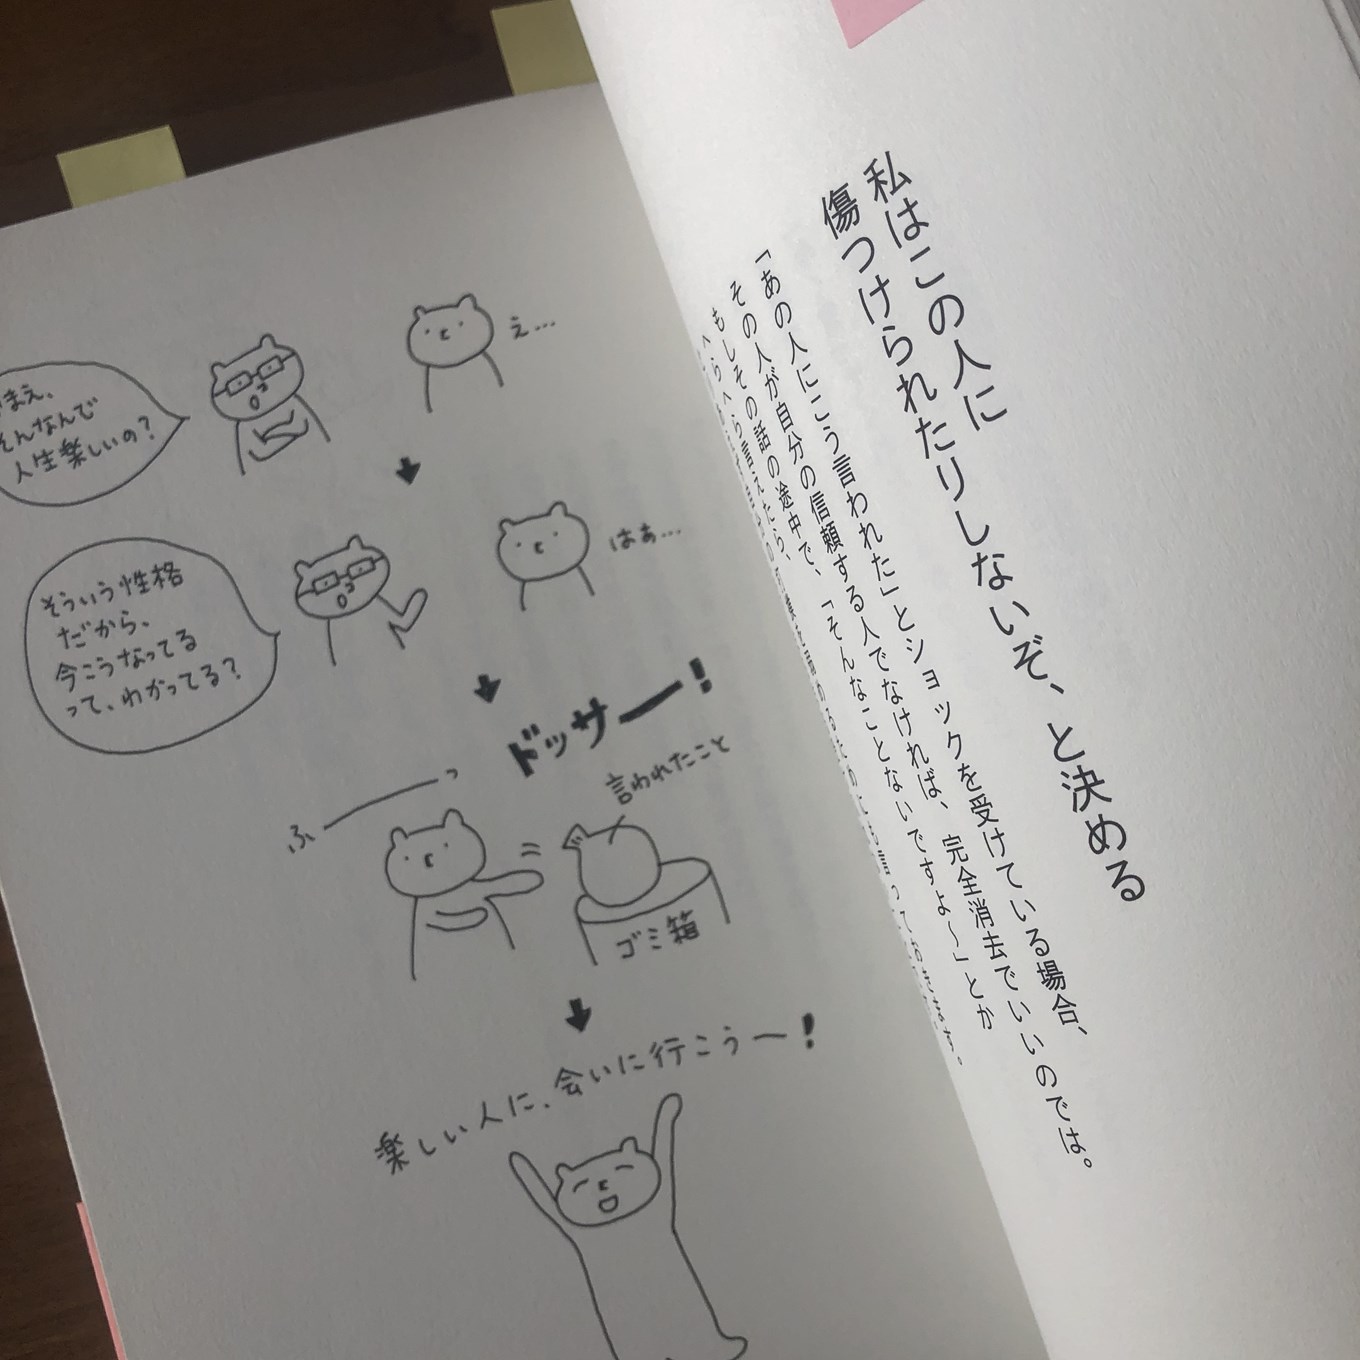 私はこの人に
傷つけられたりしないぞ、と決める
「あの人にこう言われた」とショックを受けている場合、
その人が自分の信頼する人でなければ、完全消去でいいのでは。
もしその話の途中で、「そんなことないですよ〜」とか
へらへら言えたら、
え…
まえ、
そんなんで
人生楽しいの?
はぁ…
そういう性格
だから、
今こうなってる
って、わかってる?
ドッサー!
言われたこと
ふーっ
ゴミ箱
楽しい人に、会いに行こうー!